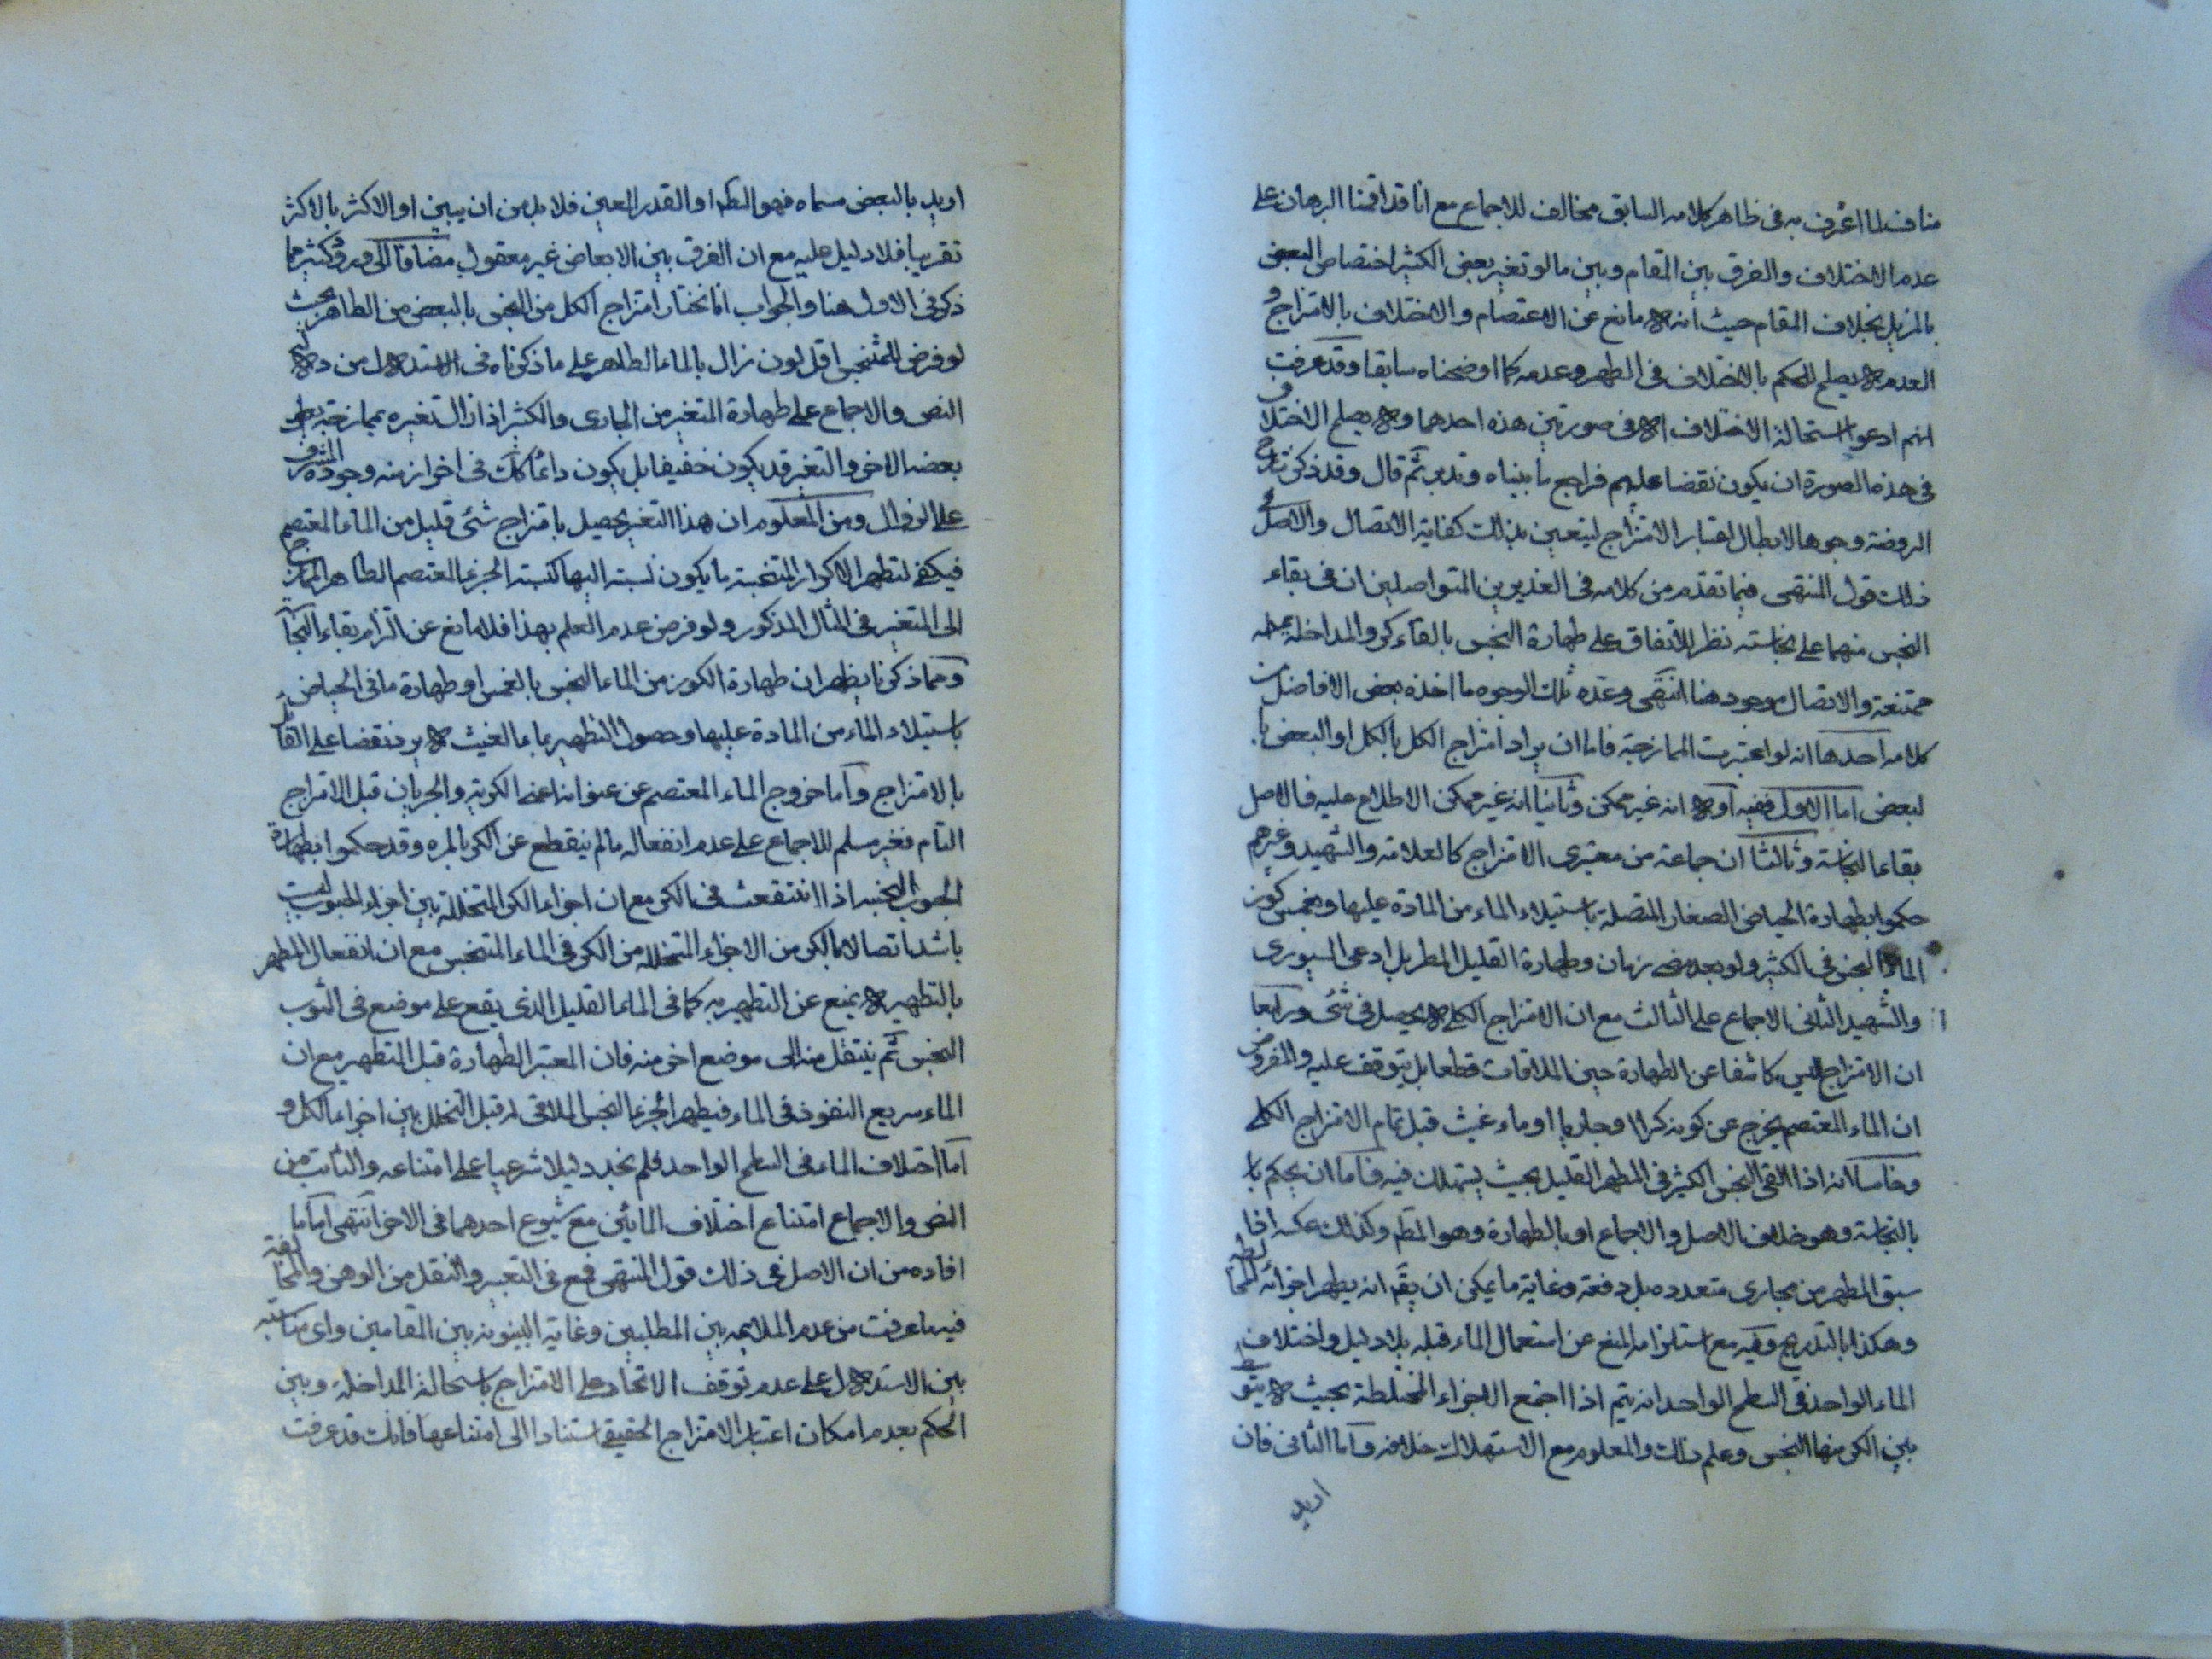 مناف لما اعترف به فى ظاهر كلامه السابق مخالف للاجماع مع انا قد اقمنا البرهان على
عدم الاختلاف والفرق بين المقام وبين ما لو تغير بعض الكثير اختصاص البعض
بالمزيل بخلاف المقام حيث انه لا مانع عن الاعتصام والاختلاف بالامتزاج و
العدم لا يصلح للحكم بالاختلاف فى الطهر وعدمه كما اوضحناه سابقا وقد عرفت
انهم ادعوا استحالة الاختلاف الا فى صورتين هذه احدهما ولا يصلح الاختلاف
فى هذه الصورة ان يكون نقضا عليهم فراجع ما بيناه وتدبر ثم قال وقد ذكر شارح
الروضة وجوها لابطال اعتبار الامتزاج ليتعين بذلك كفاية الاتصال والاصل فى
ذلك قول المنتهى فيما تقدم من كلامه فى الغديرين المتواصلين ان فى بقاء
النجس منهما على نجاسته نظر للاتفاق على طهارة النجس بالقاء كر والمداخلة
ممتنعة والاتصال موجود هنا انتهى وعمدة تلك الوجوه ما اخذه بعض الافاضل من
كلامه احدها انه لو اعتبرت الممازجة فاما ان يراد امتزاج الكل بالكل او البعض با
لبعض اما الاول ففيه اولا انه غير ممكن وثانيا انه غير ممكن الاطلاع عليه فالاصل
بقاء النجاسة وثالثا ان جماعة من معتبرى الامتزاج كالعلامة والشهيد وغيرهم
حكموا بطهارة الحياض الصغار المتصلة باستيلاء الماء من المادة عليها وبغمس كوز
الماء النجس فى الكثير ولو بعد مضى زمان وطهارة القليل بالمطر بل ادعى السيورى
والشهيد الثانى الاجماع على الثالث مع ان الامتزاج الكلى لا يحصل فى شئ ورابعا
ان الامتزاج ليس كاشفا عن الطهارة حين الملاقات قطعا بل يتوقف عليه والمفروض
ان الماء المعتصم يخرج عن كونه كرا او جاريا او ماء غيث قبل تمام الامتزاج الكلى
وخامسا انه اذا القى النجس الكثير فى المطهر القليل بحيث يستهلك فيه فاما ان يحكم با
بالنجاسة وهو خلاف الاصل والاجماع او بالطهارة وهو المطم وكذلك عكسه اذا
سبق المطهر من مجارى متعدده بل دفعة وغاية ما يمكن ان يقم انه يطهر اجزائه
وهكذا بالتدريج وفيه مع استلزامه المنع عن استعمال الماء قبله بلا دليل واختلاف
الماء الواحد فى السطح الواحد انه يتم اذا اجتمع الاجزاء المختلطة بحيث لا يتوسط
بين الكر منها النجس وعلم ذلك والمعلوم مع الاستهلاك خلافه واما الثانى فان
اريد
اريد بالبعض مسماه فهو المط او القدر المعين فلا بد من ان يبين او الاكثر بالاكثر
تقريبا فلا دليل عليه مع ان الفرق بين الابعاض غير معقول مضافا الى ورود كثير مما
ذكر فى الاول هنا والجواب انا نختار امتزاج الكل من النجس بالبعض من الطاهر بحيث
لو فرض للمتنجس اقل لون زال بالماء الطاهر على ما ذكرناه فى الاستدلال من دلالة
النص والاجماع على طهارة المتغير من الجارى والكثير اذا زال تغيره بممازجة
بعضه الاخر والتغير قد يكون خفيفا بل يكون دائما كك فى اخر ازمنة وجوده المشرف
على الزوال ومن المعلوم ان هذا التغير يحصل بامتزاج شئ قليل من الماء المعتصم
فيكفى لتطهير الاكوار المتنجسة ما يكون نسبته اليها كنسبة الجزء المعتصم الطاهر الممازج
الى المتغير فى المثال المذكور ولو فرض عدم العلم بهذا فلا مانع عن التزام بقاء النجاسة
ومما ذكرنا يظهر ان طهارة الكوز من الماء النجس بالغمس او طهارة ما فى الحياض
باستيلاء الماء من المادة عليها وحصول التطهير بماء الغيث لا يرد نقضا على القائل
بالامتزاج واما خروج الماء المعتصم عن عنوانه اعنى الكرية والجريان قبل الامتزاج
التام فغير مسلم للاجماع على عدم انفعاله ما لم ينقطع عن الكر بالمرة وقد حكموا بطهارة
الحبوب النجسة اذا انتقعت فى الكر مع ان اجزاء الكر المتخللة بين اجزاء الحبوب ليست
باشد اتصالا بالكر من الاجزاء المتخللة من الكر فى الماء المتنجس مع ان انفعال المطهر
بالتطهير لا يمنع عن التطهير به كما فى الماء القليل الذى يقع على موضع فى الثوب
النجس ثم ينتقل منه الى موضع اخر منه فان المعتبر الطهارة قبل التطهير مع ان
الماء سريع النفوذ فى الماء فيطهر الجزء النجس الملاقى له قبل التخلل بين اجزاء الكل و
اما اختلاف الماء فى السطح الواحد فلم نجد دليلا شرعيا على امتناعه والثابت من
النص والاجماع امتناع اختلاف المائين مع شيوع احدهما فى الاخر انتهى اما ما
افاده من ان الاصل فى ذلك قول المنتهى فمع فى التعبير والنقل من الوهن والمخالفة
فيه ما عرفت من عدم الملايمه بين المطلبين وغاية البينونة بين المقامين واى مناسبة
بين الاستدلال على عدم توقف الاتحاد على الامتزاج باستحالة المداخلة وبين
الحكم بعدم امكان اعتبار الامتزاج الحقيقى استنادا الى امتناعها فانك قد عرفت